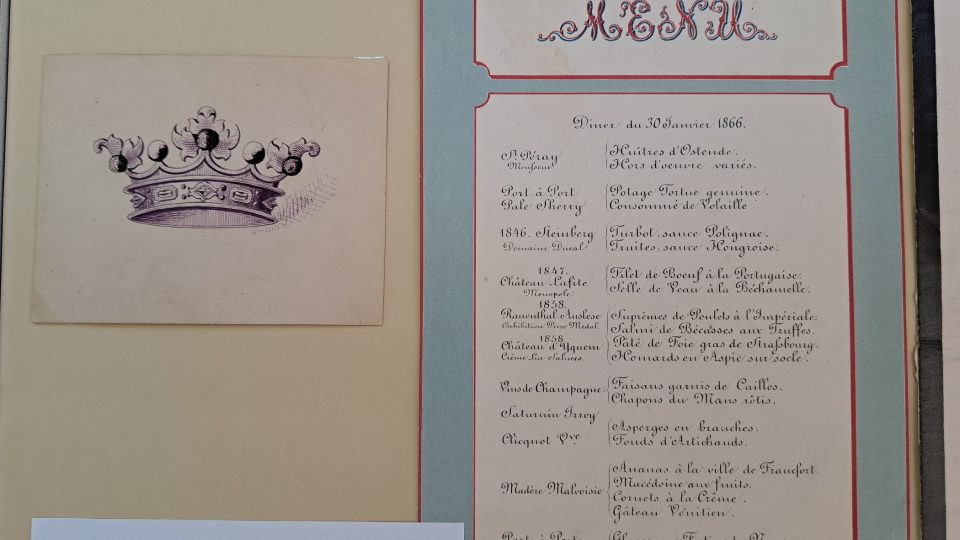 MENU
Diner du 30 Janvier 1866.
St. Péray
Mousseux
Huîtres d'Ostende.
Hors d'oeuvre variés.
Port à Port
Pale Sherry
Potage Tortue genuine.
Consommé de Volaille
1846. Steinberg
Domaine Ducal
Turbot, sauce Polignac.
Truites, sauce Hongroise.
1847.
Château Lafite
Monopole.
Filet de Boeuf à la Portugaise.
Selle de Veau à la Béchamelle.
1858.
Rauenthal Auslese
Exhibition Prize Medal.
Suprêmes de Poulets à l'Impériale.
Salmi de Bécasses aux Truffes.
1858.
Château d'Yquem
Crême Lur Saluces.
Pâté de Foie gras de Straßbourg.
Homards en Aspic sur socle.
Vins de Champagne:
Faisans garnis de Cailles.
Chapons du Mans rôtis.
Saturnin Irroy
Clicquot Vve
Asperges en branches.
Fonds d'Artichauds.
Madère Malvoisie
Ananas à la ville de Francfort.
Macédoine aux fruits.
Cornets à la Crême.
Gâteau Vénitien.